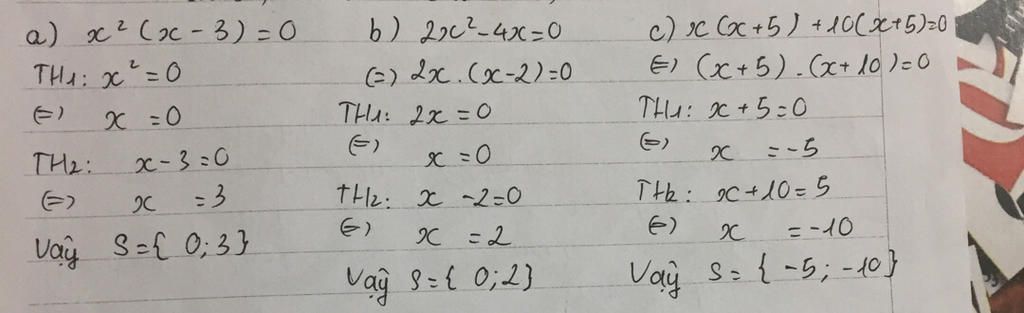 a) x² (x - 3) = 0
TH1: x² = 0
⇔ x = 0
TH2: x - 3 = 0
⇔ x = 3
Vậy S = { 0; 3 }
b) 2x² - 4x = 0
⇔ 2x . (x - 2) = 0
TH1: 2x = 0
⇔ x = 0
TH2: x - 2 = 0
⇔ x = 2
Vậy S = { 0; 2 }
c) x (x + 5) + 10 (x + 5) = 0
⇔ (x + 5) . (x + 10) = 0
TH1: x + 5 = 0
⇔ x = -5
TH2: x + 10 = 5
⇔ x = -10
Vậy S = { -5; -10 }